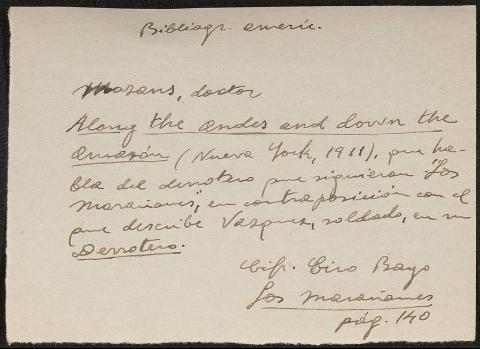 Bibliogr. americ.
Mozans, doctor
Along the andes and down the
amazón (Nueva York, 1911), que ha-
bla del derrotero que siguieron "Los
Marañones", en contraposición con el
que describe Vazquez, soldado, en su
Derrotero.
Cifr. Ciro Bayo
Los marañones
pág. 140